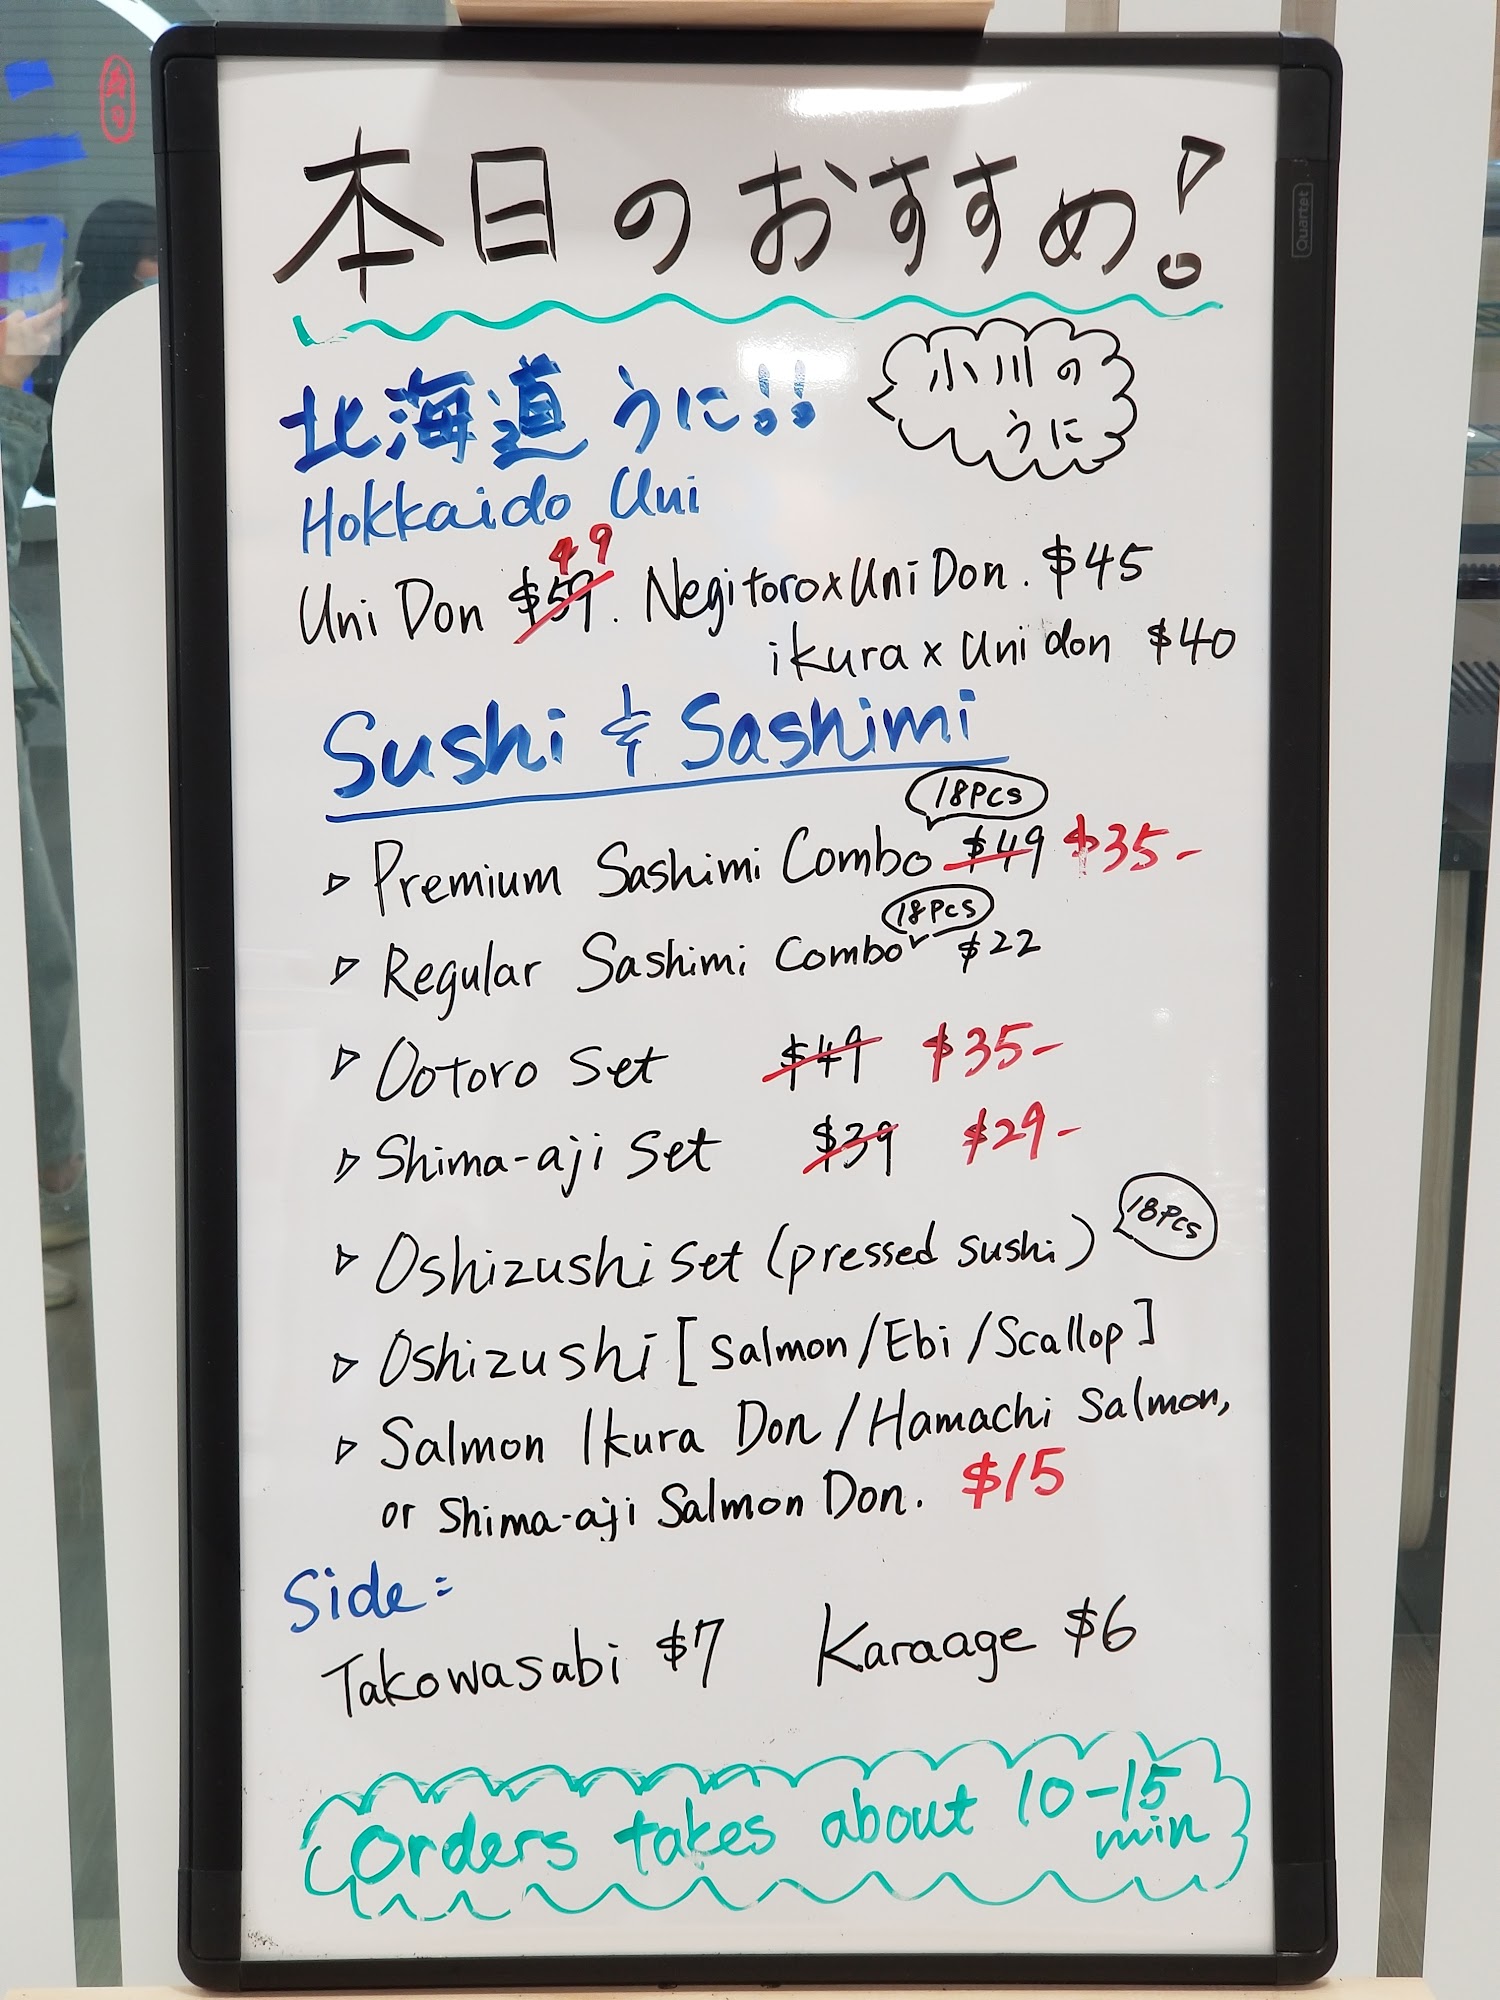 本日のおすすめ!
北海道うに!!
小川の
うに
Hokkaido Uni
Uni Don $59 49. Negitoro x Uni Don. $45
ikura x Uni don $40
Sushi & Sashimi
18Pcs
▷ Premium Sashimi Combo $49 $35-
18Pcs
▷ Regular Sashimi Combo $22
▷ Ootoro Set $49 $35-
▷ Shima-aji Set $39 $29-
▷ Oshizushi Set (pressed sushi) 18Pcs
▷ Oshizushi [Salmon/Ebi/Scallop]
▷ Salmon Ikura Don/Hamachi Salmon,
or Shima-aji Salmon Don. $15
Side:
Takowasabi $7 Karaage $6
Orders takes about 10-15
min
Quartet